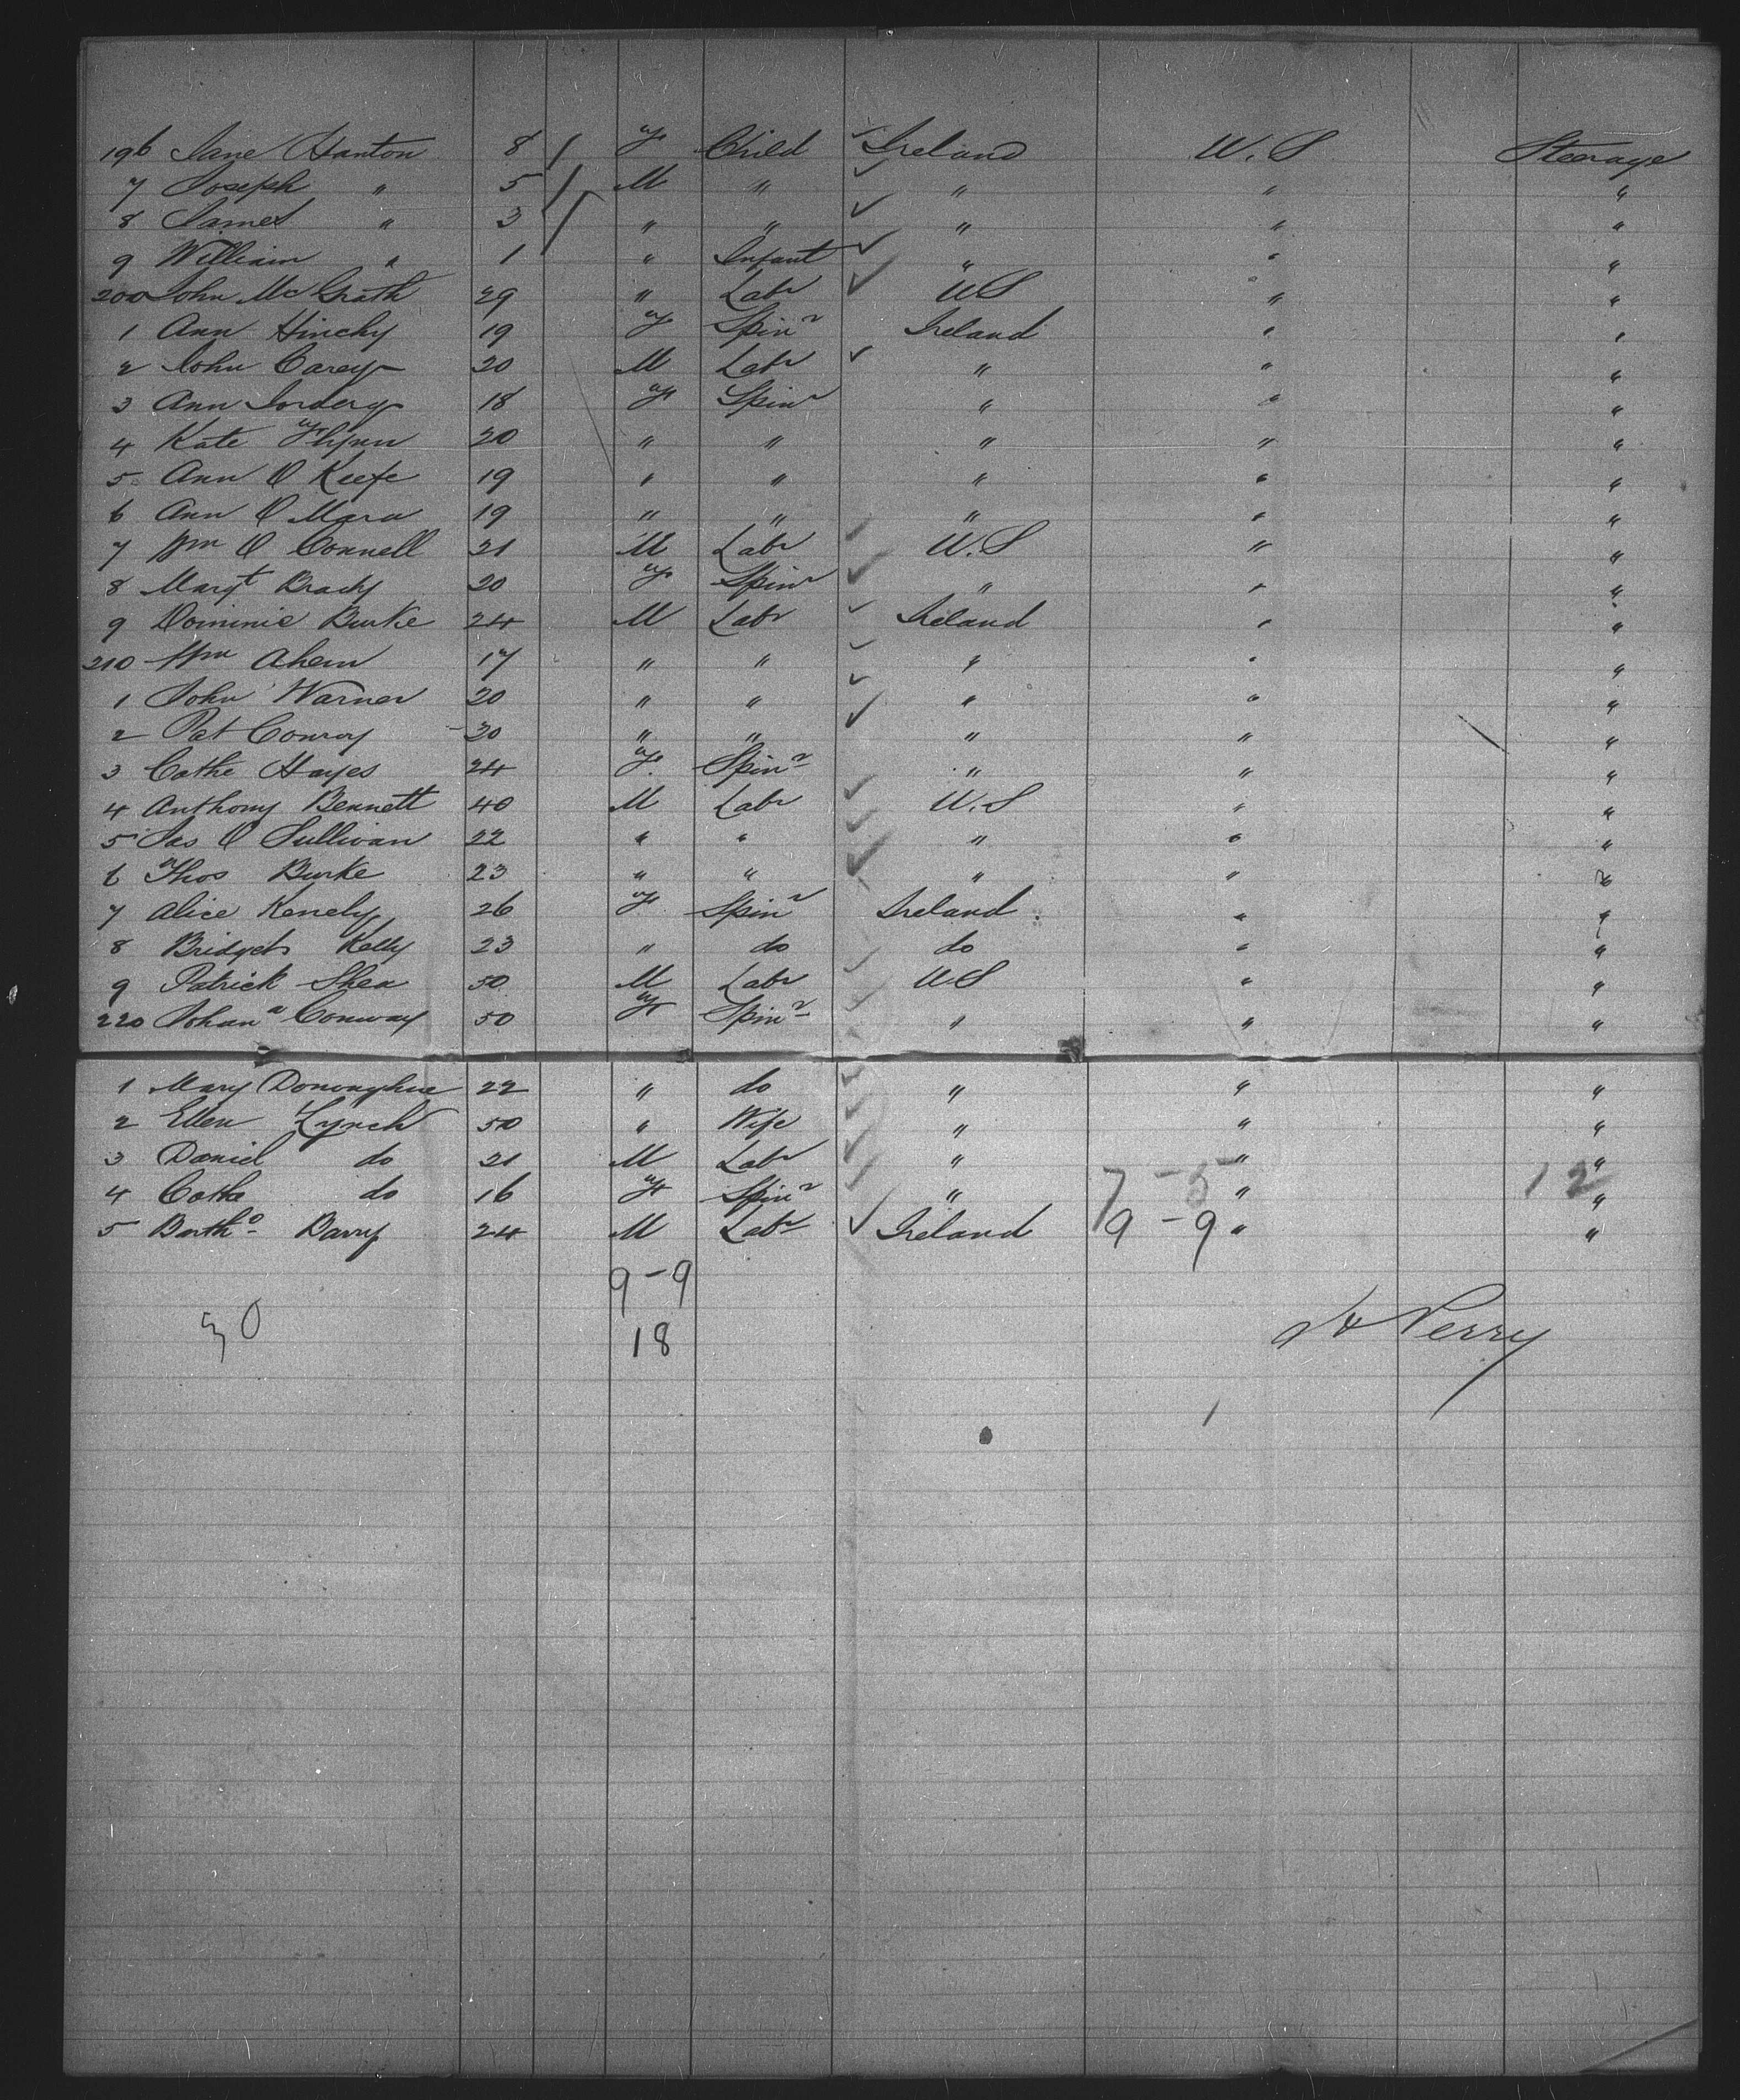 196 Jane Hanton 8 / F Child ✓ Ireland U.S Steerage
7 Joseph " 5 / M " ✓ " " "
8 James " 3 / " " ✓ " " "
9 William " 1 " Infant ✓ " " "
200 John McGrath 29 " Labr ✓ US " "
1 Ann Hinchy 19 F Spinr Ireland " "
2 John Carey 20 M Labr ✓ " " "
3 Ann 18 F Spinr " " "
4 Kate Flynn 20 " " " " "
5 Ann O Keefe 19 " " " " "
6 Ann O Mara 19 " " " " "
7 Wm O Connell 21 M Labr ✓ U.S " "
8 Margt Brady 20 F Spinr ✓ " " "
9 Dominic Burke 24 M Labr ✓ Ireland " "
210 Wm Ahern 17 " " ✓ " " "
1 John Warner 20 " " ✓ " " "
2 Pat Conroy 30 " " ✓ " " "
3 Cathe Hayes 24 F. Spinr " " "
4 Anthony Bennett 40 M Labr ✓ U.S " "
5 Jas O Sullivan 22 " " ✓ " " "
6 Thos Burke 23 " " ✓ " " "
7 Alice Kenely 26 F Spinr Ireland " "
8 Bridget Kelly 23 " do do " "
9 Patrick Shea 50 M Labr ✓ US " "
220 Johana Conway 50 F Spinr " " "
1 Mary Donoughue 22 " do ✓ " " "
2 Ellen Lynch 50 " Wife ✓ " " "
3 Daniel do 21 M Labr ✓ " " "
4 Cathe do 16 F Spinr ✓ " 7 - 5 " 12 "
5 Bartho Barry 24 M Labr ✓ Ireland 9 - 9 " "
9 - 9
30 18 Perry